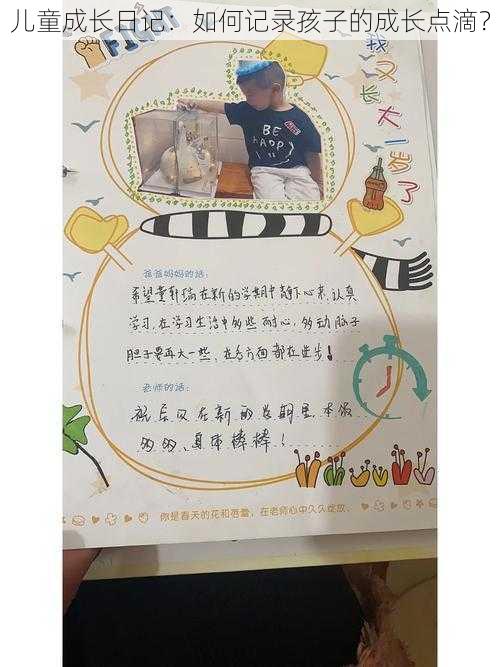 儿童成长日记：如何记录孩子的成长点滴？
FIGHT
我又长大一岁了
BE
HAPPY
爸爸妈妈的话：
在新的学期中静下心来，认真
学习，在学习生活中多些耐心，多动脑子
胆子要再大一些，在各方面都在进步！
老师的话：
祝你在新的学期里，本领
多多，身体棒棒！
你是春天的花和蓓蕾，在老师心中久久绽放。